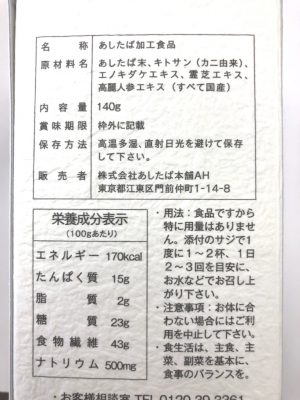 名称 あしたば加工食品
原材料名 あしたば末、キトサン(カニ由来)、
エノキダケエキス、霊芝エキス、
高麗人参エキス(すべて国産)
内容量 140g
賞味期限 枠外に記載
保存方法 高温多湿、直射日光を避けて保存
して下さい。
販売者 株式会社あしたば本舗AH
東京都江東区門前仲町1-14-8
栄養成分表示
(100gあたり)
エネルギー 170kcal
たんぱく質 15g
脂質 2g
糖質 23g
食物繊維 43g
ナトリウム 500mg
・用法:食品ですから
特に用量はありませ
ん。添付のサジで1
度に1〜2杯、1日
2〜3回を目安に、
お水などでお召し上
がり下さい。
・注意事項:お体に合
わない場合にはご利
用を中止して下さい。
・食生活は、主食、主
菜、副菜を基本に、
食事のバランスを。
・お客様相談室